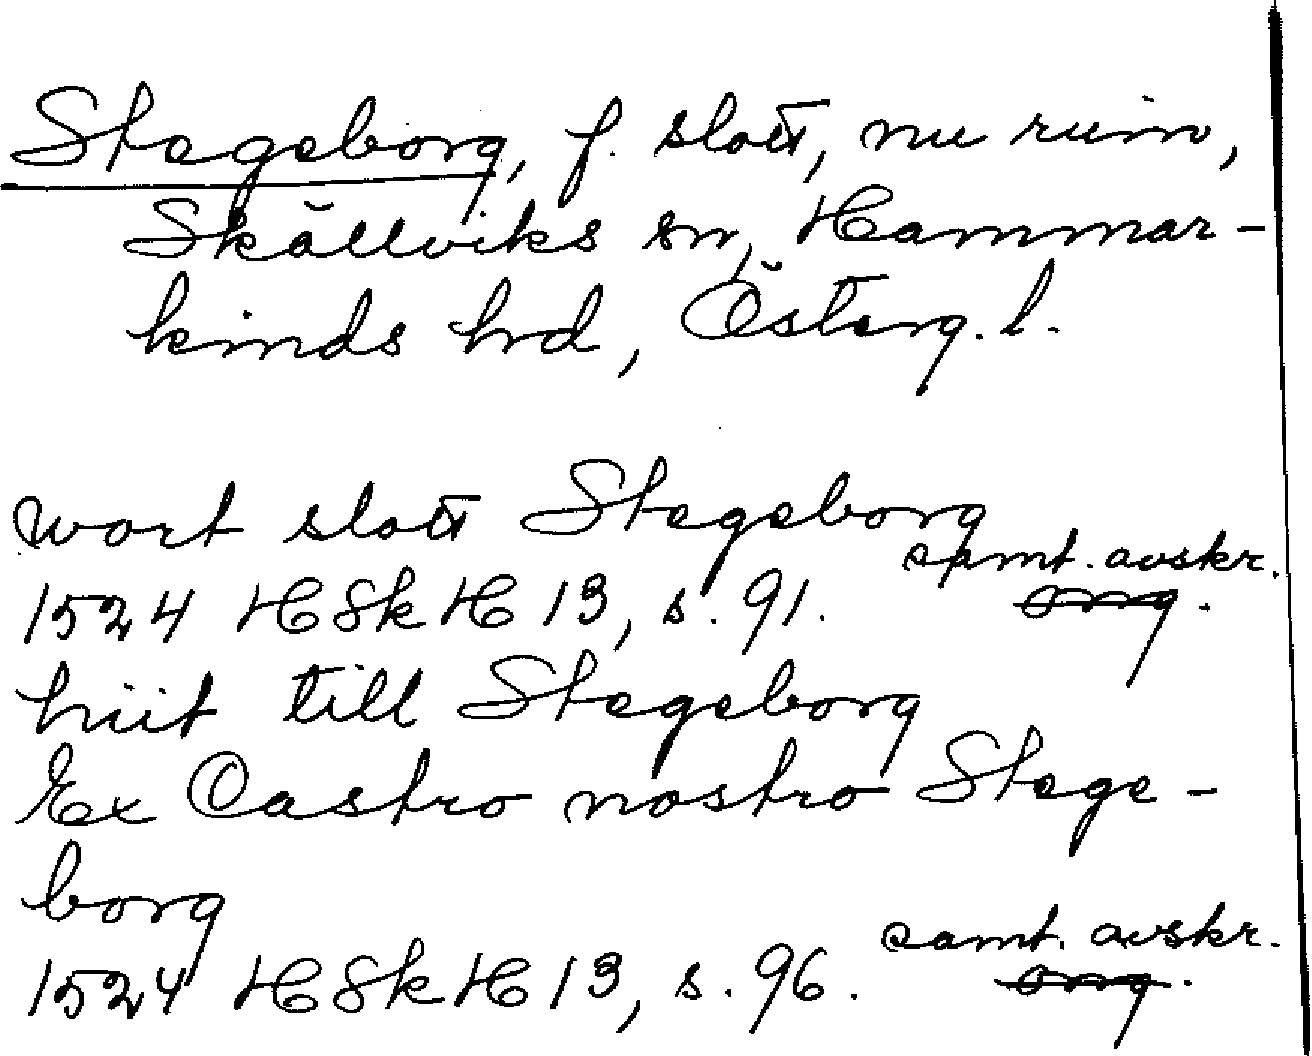 Stegeborg, f. slott, nu ruin,
Skällviks sn, Hammar-
kinds hrd, Österg. l.
wort slott Stegeborg
samt. avskr.
1524 HSkH 13, s. 91. orig.
hiit till Stegeborg
Ex Castro nostro Stege-
borg
samt. avskr.
1524 HSkH 13, s. 96. orig.